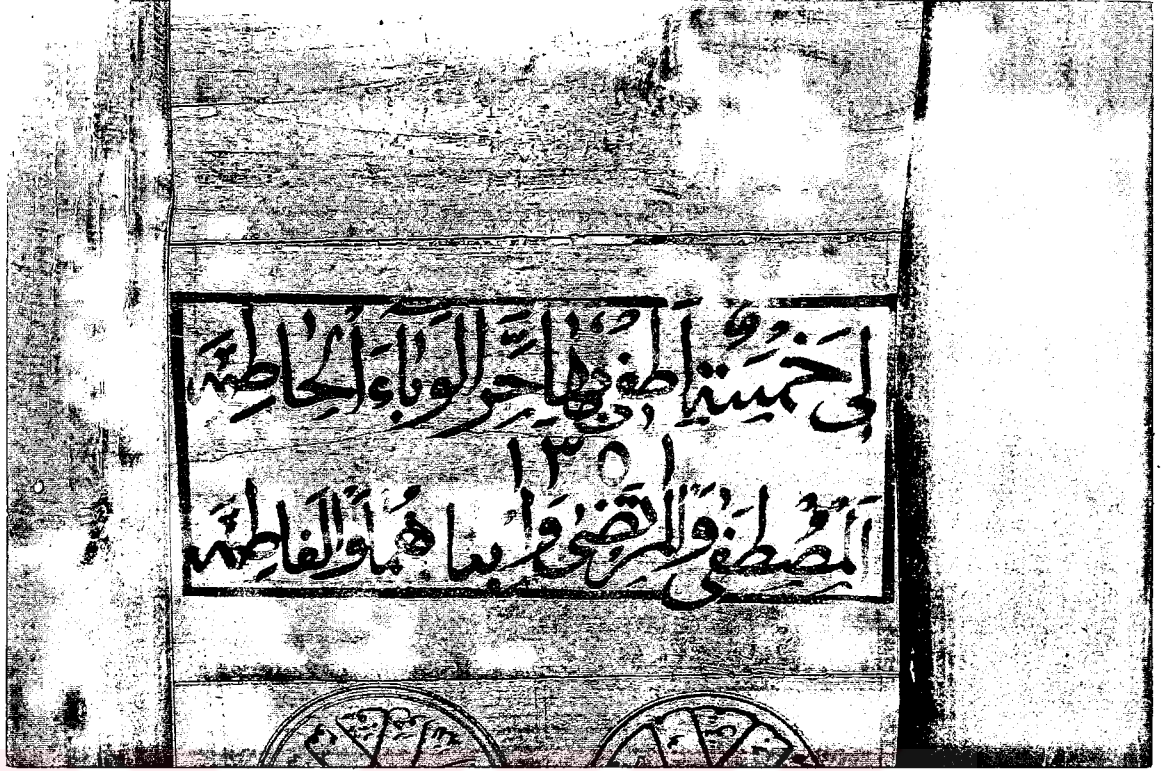 لى خمسة اطفى بها حر الوباء الحاطمة
١٣٥١
المصطفى والمرتضى وابناهما والفاطمة